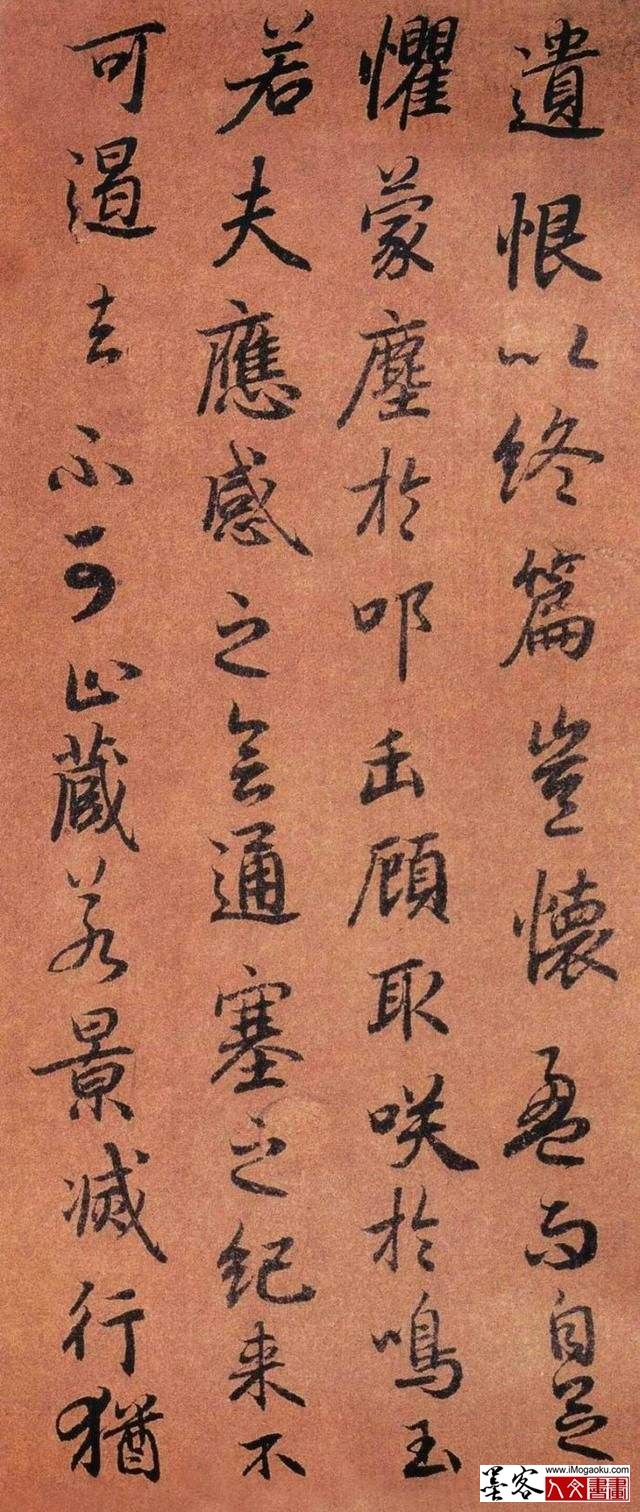 遺恨以終篇豈懷盈而自足
懼蒙塵於叩缶顧取咲於鳴玉
若夫應感之會通塞之紀来不
可遏去不可止藏若景滅行猶
墨客 www.iMogaoku.com
人文書畫